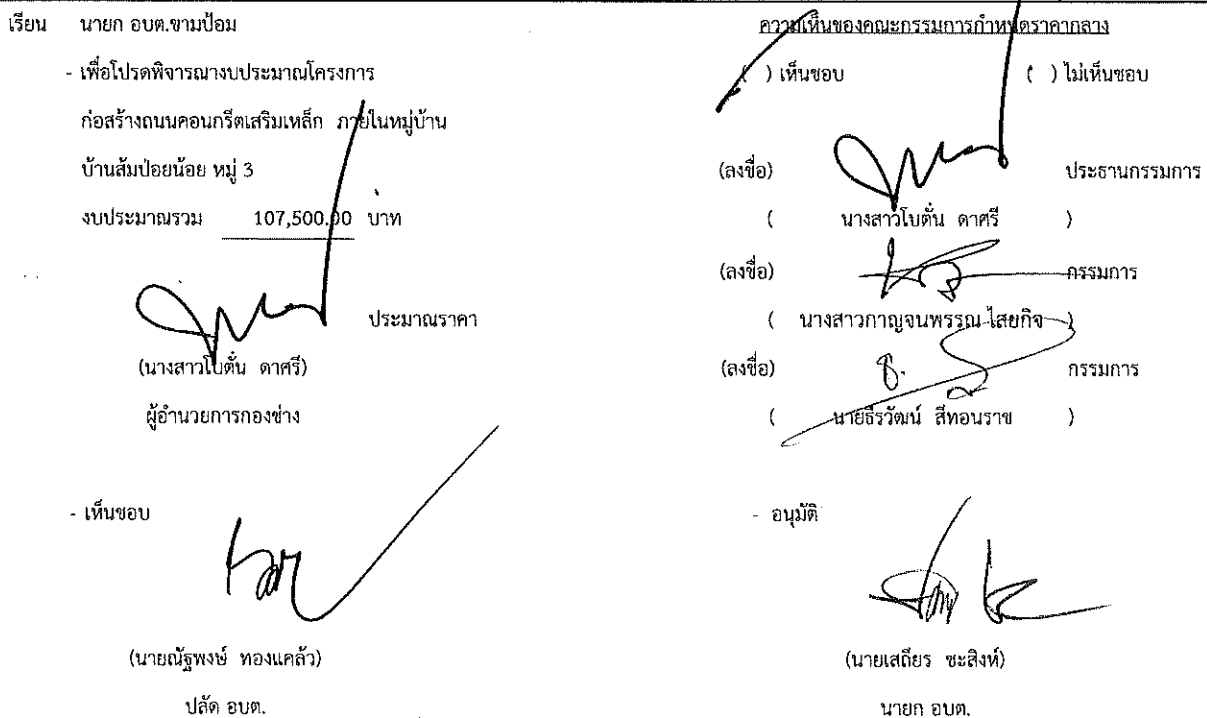 เรียน นายก อบต.ขามป้อม
- เพื่อโปรดพิจารณางบประมาณโครงการ
ก่อสร้างถนนคอนกรีตเสริมเหล็ก ภายในหมู่บ้าน
บ้านส้มป่อยน้อย หมู่ 3
งบประมาณรวม 107,500.00 บาท
ประมาณราคา
(นางสาวโบตั๋น ดาศรี)
ผู้อำนวยการกองช่าง
- เห็นชอบ
(นายณัฐพงษ์ ทองแคล้ว)
ปลัด อบต.
ความเห็นของคณะกรรมการกำหนดราคากลาง
( ) เห็นชอบ ( ) ไม่เห็นชอบ
(ลงชื่อ) ประธานกรรมการ
( นางสาวโบตั๋น ดาศรี )
(ลงชื่อ) กรรมการ
( นางสาวกาญจนพรรณ ไสยกิจ )
(ลงชื่อ) กรรมการ
( นายธีรวัฒน์ สีทอนราช )
- อนุมัติ
(นายเสถียร ชะสิงห์)
นายก อบต.